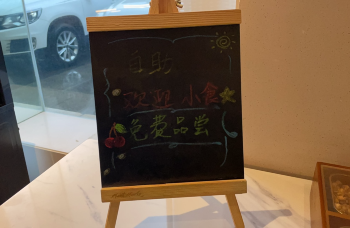 自助
欢迎 小食
免费品尝